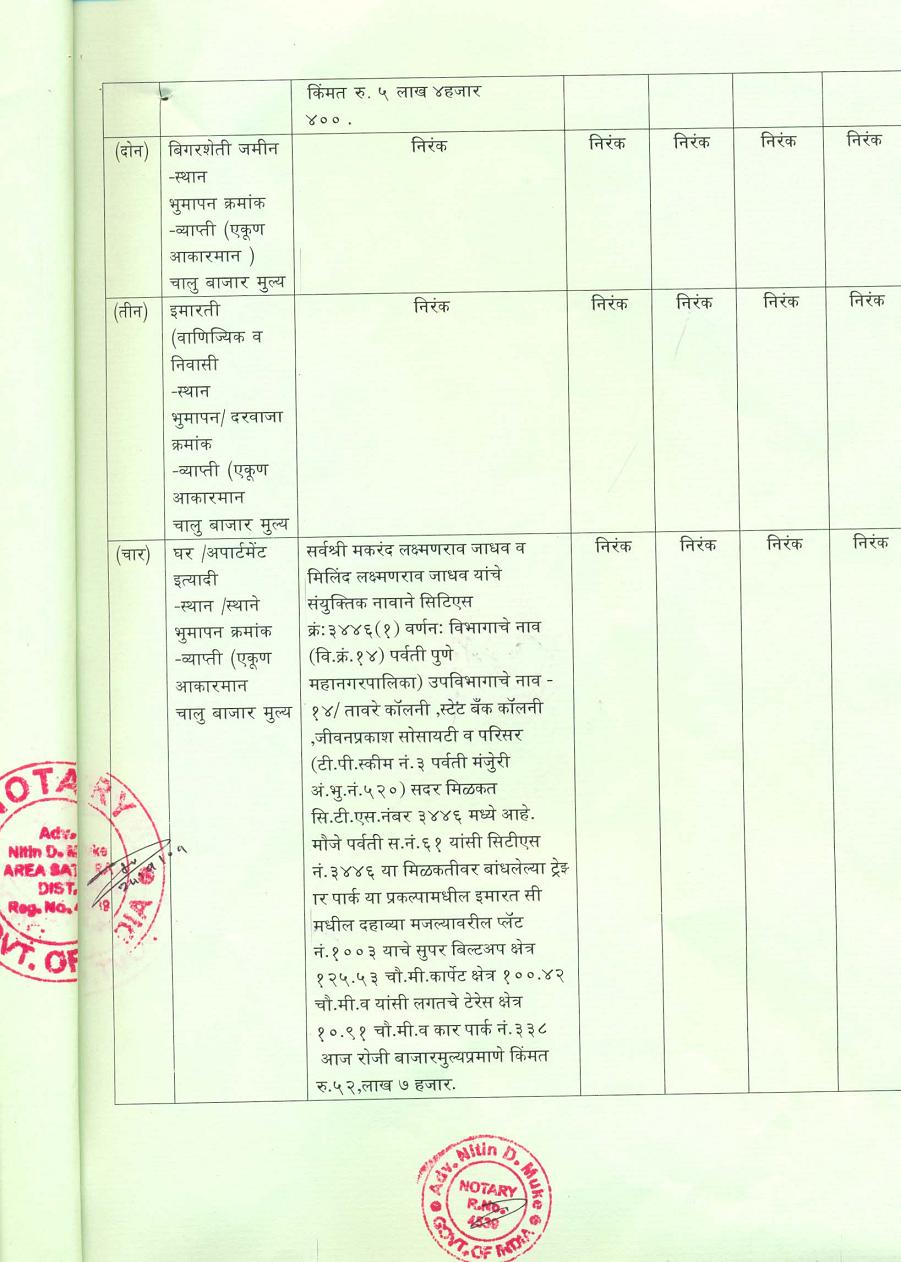 किंमत रु. ५ लाख ४हजार
४०० .
(दोन) बिगरशेती जमीन निरंक निरंक निरंक निरंक निरंक
-स्थान
भुमापन क्रमांक
-व्याप्ती (एकूण
आकारमान )
चालु बाजार मुल्य
(तीन) इमारती निरंक निरंक निरंक निरंक निरंक
(वाणिज्यिक व
निवासी
-स्थान
भुमापन/ दरवाजा
क्रमांक
-व्याप्ती (एकूण
आकारमान
चालु बाजार मुल्य
(चार) घर /अपार्टमेंट सर्वश्री मकरंद लक्ष्मणराव जाधव व निरंक निरंक निरंक निरंक
इत्यादी मिलिंद लक्ष्मणराव जाधव यांचे
-स्थान /स्थाने संयुक्तिक नावाने सिटिएस
भुमापन क्रमांक क्रं:३४४६(१) वर्णन: विभागाचे नाव
-व्याप्ती (एकूण (वि.क्रं.१४) पर्वती पुणे
आकारमान महानगरपालिका) उपविभागाचे नाव -
चालु बाजार मुल्य १४/ तावरे कॉलनी ,स्टेट बँक कॉलनी
,जीवनप्रकाश सोसायटी व परिसर
(टी.पी.स्कीम नं.३ पर्वती मंजुरी
अं.भु.नं.५२०) सदर मिळकत
सि.टी.एस.नंबर ३४४६ मध्ये आहे.
मौजे पर्वती स.नं.६१ यांसी सिटीएस
नं.३४४६ या मिळकतीवर बांधलेल्या ट्रेझ
ार पार्क या प्रकल्पामधील इमारत सी
मधील दहाव्या मजल्यावरील प्लॅट
नं.१००३ याचे सुपर बिल्टअप क्षेत्र
१२५.५३ चौ.मी.कार्पेट क्षेत्र १००.४२
चौ.मी.व यांसी लगतचे टेरेस क्षेत्र
१०.९१ चौ.मी.व कार पार्क नं.३३८
आज रोजी बाजारमुल्यप्रमाणे किंमत
रु.५२,लाख ७ हजार.
NOTARY
Adv.
Nitin D.
AREA
DIST.
Reg. No.
GOVT. OF INDIA
Adv. Nitin D. Muke
NOTARY
R.No.
4539
GOVT. OF INDIA